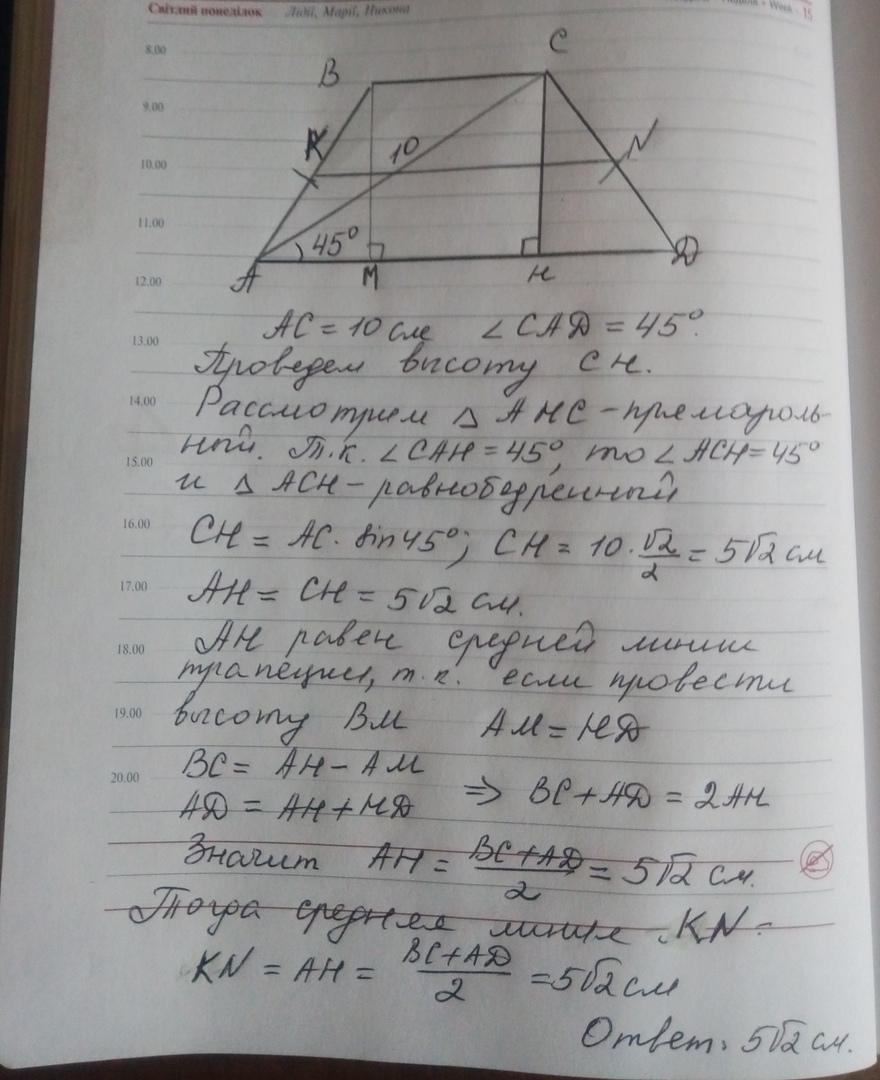 Світлий понеділок Лідії, Марії, Никона
Week · 15
8.00
9.00
10.00
11.00
12.00
13.00
14.00
15.00
16.00
17.00
18.00
19.00
20.00
B C
K 10 N
45°
A M H D
AC = 10 см ∠CAD = 45°.
Проведем высоту CH.
Рассмотрим △ AHC - прямоуголь-
ный. Т.к. ∠CAH = 45°, то ∠ACH = 45°
и △ ACH - равнобедренный
CH = AC · sin45°; CH = 10 · √2/2 = 5√2 см
AH = CH = 5√2 см.
AH равен средней линии
трапеции, т.к. если провести
высоту BM AM = HD
BC = AH - AM
AD = AH + HD ⇒ BC + AD = 2AH
Значит AH = BC + AD / 2 = 5√2 см.
Тогда средняя линия KN -
KN = AH = BC + AD / 2 = 5√2 см
Ответ: 5√2 см.